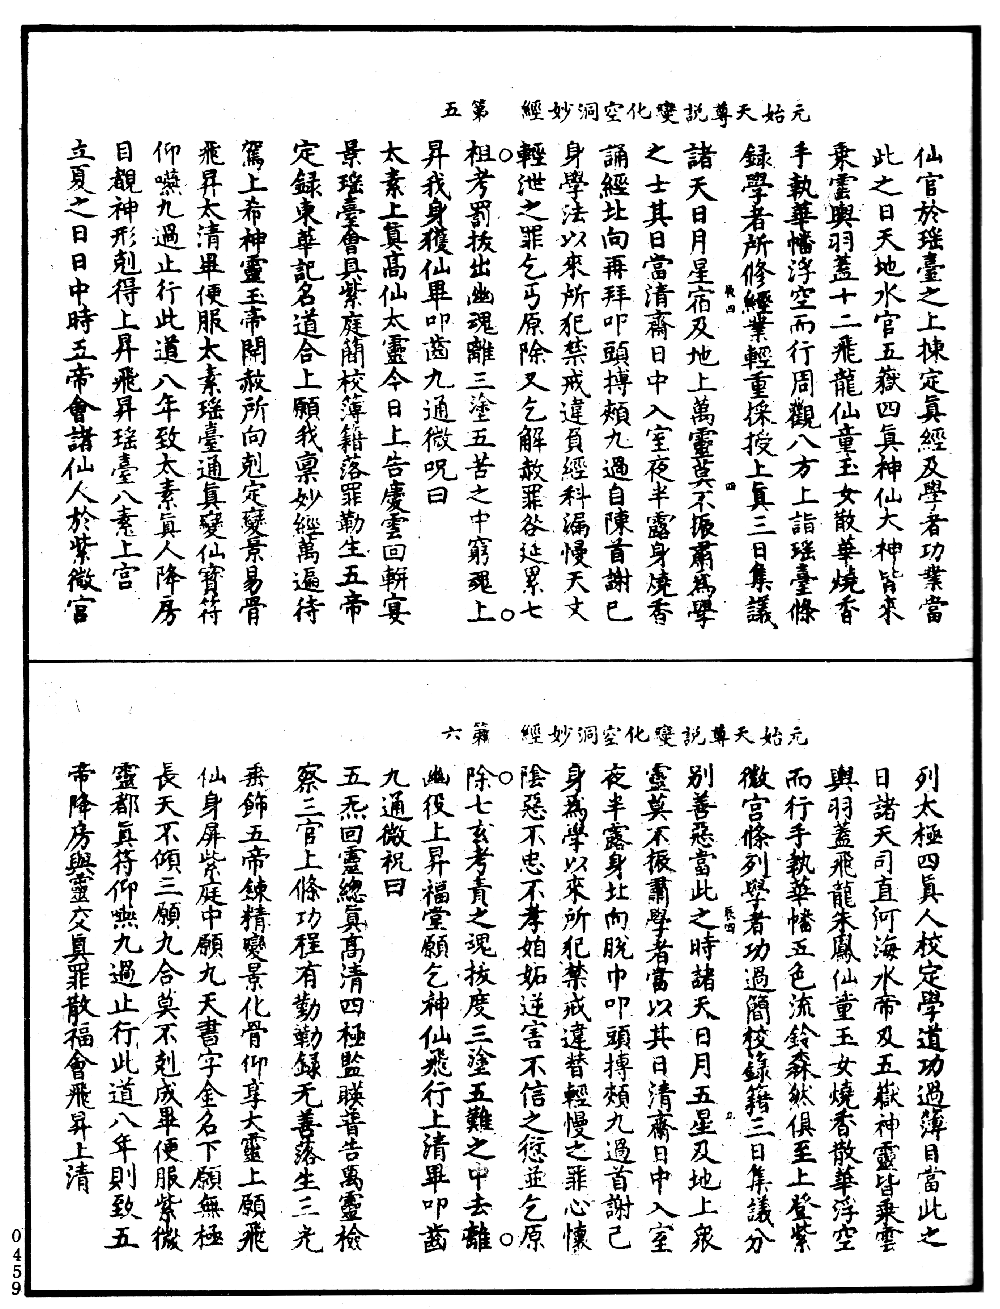 元始天尊說變化空洞妙經　第五
仙官於瑶臺之上揀定真經及學者功業當
此之日天地水官五嶽四真神仙大神皆來
乗雲輿羽蓋十二飛龍仙童玉女散華燒香
手執華旛浮空而行周觀八方上詣瑶臺條
録學者所修經業輕重採授上真三日集議
諸天日月星宿及地上萬靈莫不振肅為學
之士其日當清齋日中入室夜半露身燒香
誦經北向再拜叩頭搏頰九過自陳首謝已
身學法以來所犯禁戒違負經科漏慢天文
輕泄之罪乞丐原除又乞解赦罪咎延累七
祖考罰拔出幽魂離三塗五苦之中窮魂上
昇我身獲仙畢叩齒九通微呪曰
太素上真高仙太靈今日上告慶雲回輧宴
景瑶臺會具紫庭簡校簿籍落罪勒生五帝
定録東華記名道合上願我稟妙經萬遍待
駕上希神靈玉帝開赦所向剋定變景易骨
飛昇太清畢便服太素瑶臺通真變仙寶符
仰嚥九過止行此道八年致太素真人降房
目覩神形剋得上昇飛昇瑶臺八素上宫
立夏之日日中時五帝會諸仙人於紫微宫
元始天尊說變化空洞妙經　第六
列太極四真人校定學道功過簿目當此之
日諸天司直河海水帝及五嶽神靈皆乗雲
輿羽蓋飛龍朱鳳仙童玉女燒香散華浮空
而行手執華旛五色流鈴森然俱至上登紫
微宫條列學者功過簡校録籍三日集議分
別善惡當此之時諸天日月五星及地上衆
靈莫不振肅學者當以其日清齋日中入室
夜半露身北向脫巾叩頭搏頰九過首謝已
身為學以來所犯禁戒違替輕慢之罪心懷
陰惡不忠不孝姐妬逆害不信之愆並乞原
除七玄考責之魂拔度三塗五難之中去離
幽役上昇福堂願乞神仙飛行上清畢叩齒
九通微祝曰
五炁回靈總真高清四極監暎普告萬靈檢
察三官上條功程有勤勒録无善落生三光
乗飾五帝錬精變景化骨仰享大靈上願飛
仙身屏紫庭中願九天書字金名下願無極
長天不傾三願九合莫不剋成畢便服紫微
靈都真符仰嚥九過止行此道八年則致五
帝降房與靈交真罪散福會飛昇上清
0459